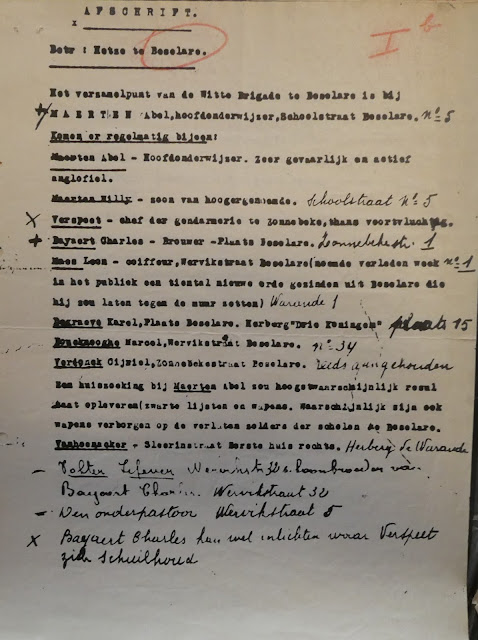 AFSCHRIFT.
x
I b
Betr : Hetze te Beselare.
Het verzamelpunt van de Witte Brigade te Beselare is bij
MAERTEN Abel,hoofdonderwijzer,Schoolstraat Beselare. n° 5
Komen er regelmatig bijeen:
Maerten Abel - Hoofdonderwijzer. Zeer gevaarlijk en actief
anglofiel.
Maarten Willy - zoon van hoogergenoemde. Schoolstraat n° 5
X Verspeet - chef der gendarmerie te Zonnebeke,thans voortvluchtig.
+ Bayaert Charles - Brouwer -Plaats Beselare. Zonnebekestr 1
Maes Leon - coiffeur,Wervikstraat Beselare(noemde verleden week n° 1
in het publiek een tiental nieuwe orde gezinden uit Beselare die
hij zou laten tegen de muur zetten) Warande 1
Degraeve Karel,Plaats Beselare. Herberg"Drie Koningen" plaats 15
Marcel,Wervikstraat Beselare. n° 34
Verdonck Cijriel,Zonnebekestraat Beselare. reeds aangehouden
Een huiszoeking bij Maerten Abel zou hoogstwaarschijnlijk resul
taat opleveren(zwarte lijsten en wapens. Waarschijnlijk zijn ook
wapens verborgen op de verlaten zolders der scholen te Beselare.
Vanhoenacker - Sleerinstraat Eerste huis rechts. Herberg de Warande
-
Bayaert Wervikstraat 32
- Den onderpastoor Wervikstraat 5
X Bayaert Charles kan wel inlichten waar Verspeet
zich schuilhoud